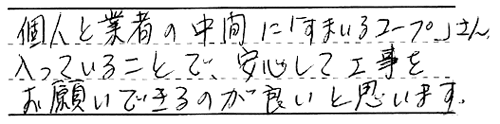 個人と業者の中間に「すまいるコープ」さん、
入っていることで、安心して工事を
お願いできるのが良いと思います。